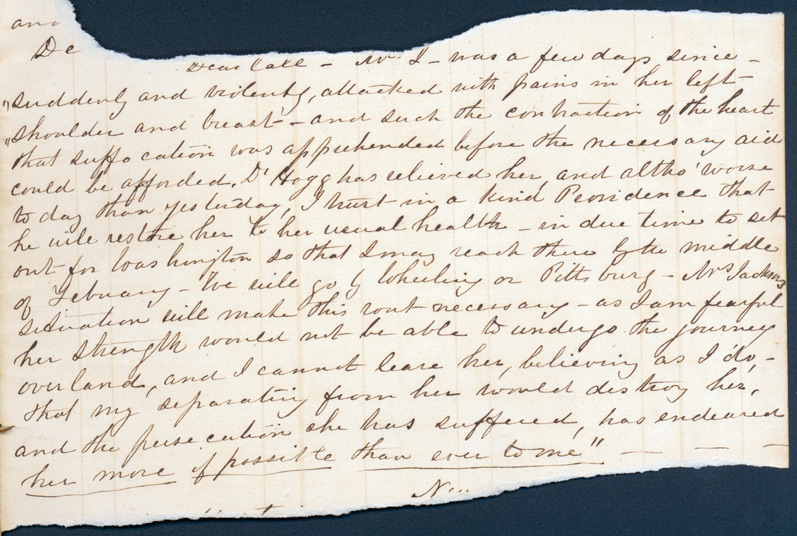 and
De
Dear Call - Mrs J- was a few days since -
"suddenly and violently, attacked with pains in her left-
"shoulder and breast - and such the contraction of the heart
that suffocation was apprehended before the necessary aid
could be afforded. Dr Hogg has relieved her, and altho' worse
to day than yesterday, I trust in a kind Providence that
he will restore her to her usual health - in due time to set
out for Washington so that I may reach there by the middle
of February - We will go by Wheeling or Pittsburg - Mrs Jacksons
situation will make this rout necessary - as I am fearful
her strength would not be able to undergo the journey
over land, and I cannot leave her, believing as I do, -
that my separating from her would destroy her,
and the persecution she has suffered, has endeared
her more if possible than ever to me" -